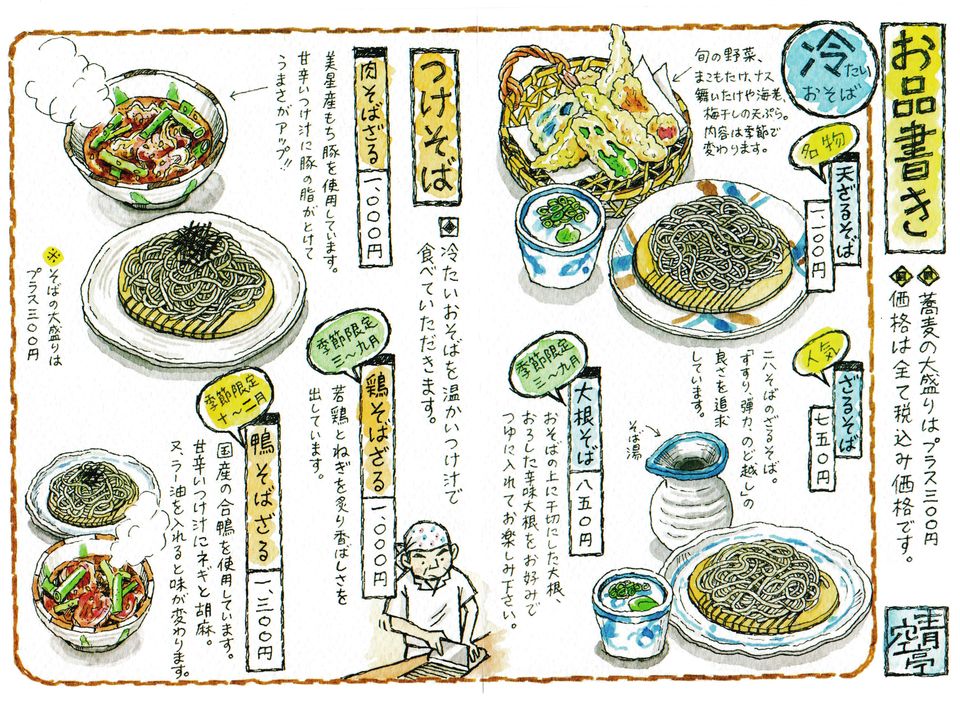 お品書き
蕎麦の大盛りはプラス三〇〇円
価格は全て税込み価格です。
青空亭
冷たい
おそば
名物
天ざるそば
一、一〇〇円
旬の野菜、
まこもたけ、ナス
舞いたけや海老、
梅干しの天ぷら。
内容は季節で
変わります。
人気
ざるそば
七五〇円
二八そばのざるそば。
「すすり、弾力、のど越し」の
良さを追求
しています。
そば湯
季節限定
三〜九月
大根そば
八五〇円
おそばの上に千切にした大根、
おろした辛味大根をお好みで
つゆに入れてお楽しみ下さい。
つけそば
冷たいおそばを温かいつけ汁で
食べていただきます。
肉そばざる
一、〇〇〇円
美星産もち豚を使用しています。
甘辛いつけ汁に豚の脂がとけて
うまさがアップ!!
※そばの大盛りは
プラス三〇〇円
季節限定
三〜九月
鶏そばざる
一、〇〇〇円
若鶏とねぎを炙り香ばしさを
出しています。
季節限定
十〜二月
鴨そばざる
一、三〇〇円
国産の合鴨を使用しています。
甘辛いつけ汁にネギと胡麻。
又、ラー油を入れると味が変わります。